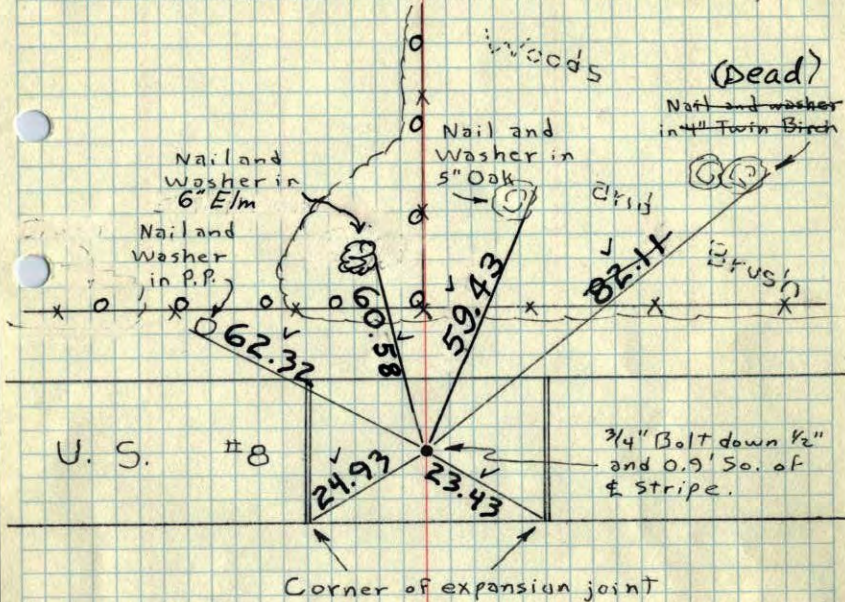 Woods
(Dead)
Nail and washer
in 4" Twin Birch
Nail and
Washer in
5" Oak
Nail and
Washer in
6" Elm
Nail and
Washer
in P.P.
and
Brush
62.32
60.58
59.43
82.11
U. S. #8
24.93
23.43
3/4" Bolt down 1/2"
and 0.9' So. of
℄ Stripe.
Corner of expansion joint